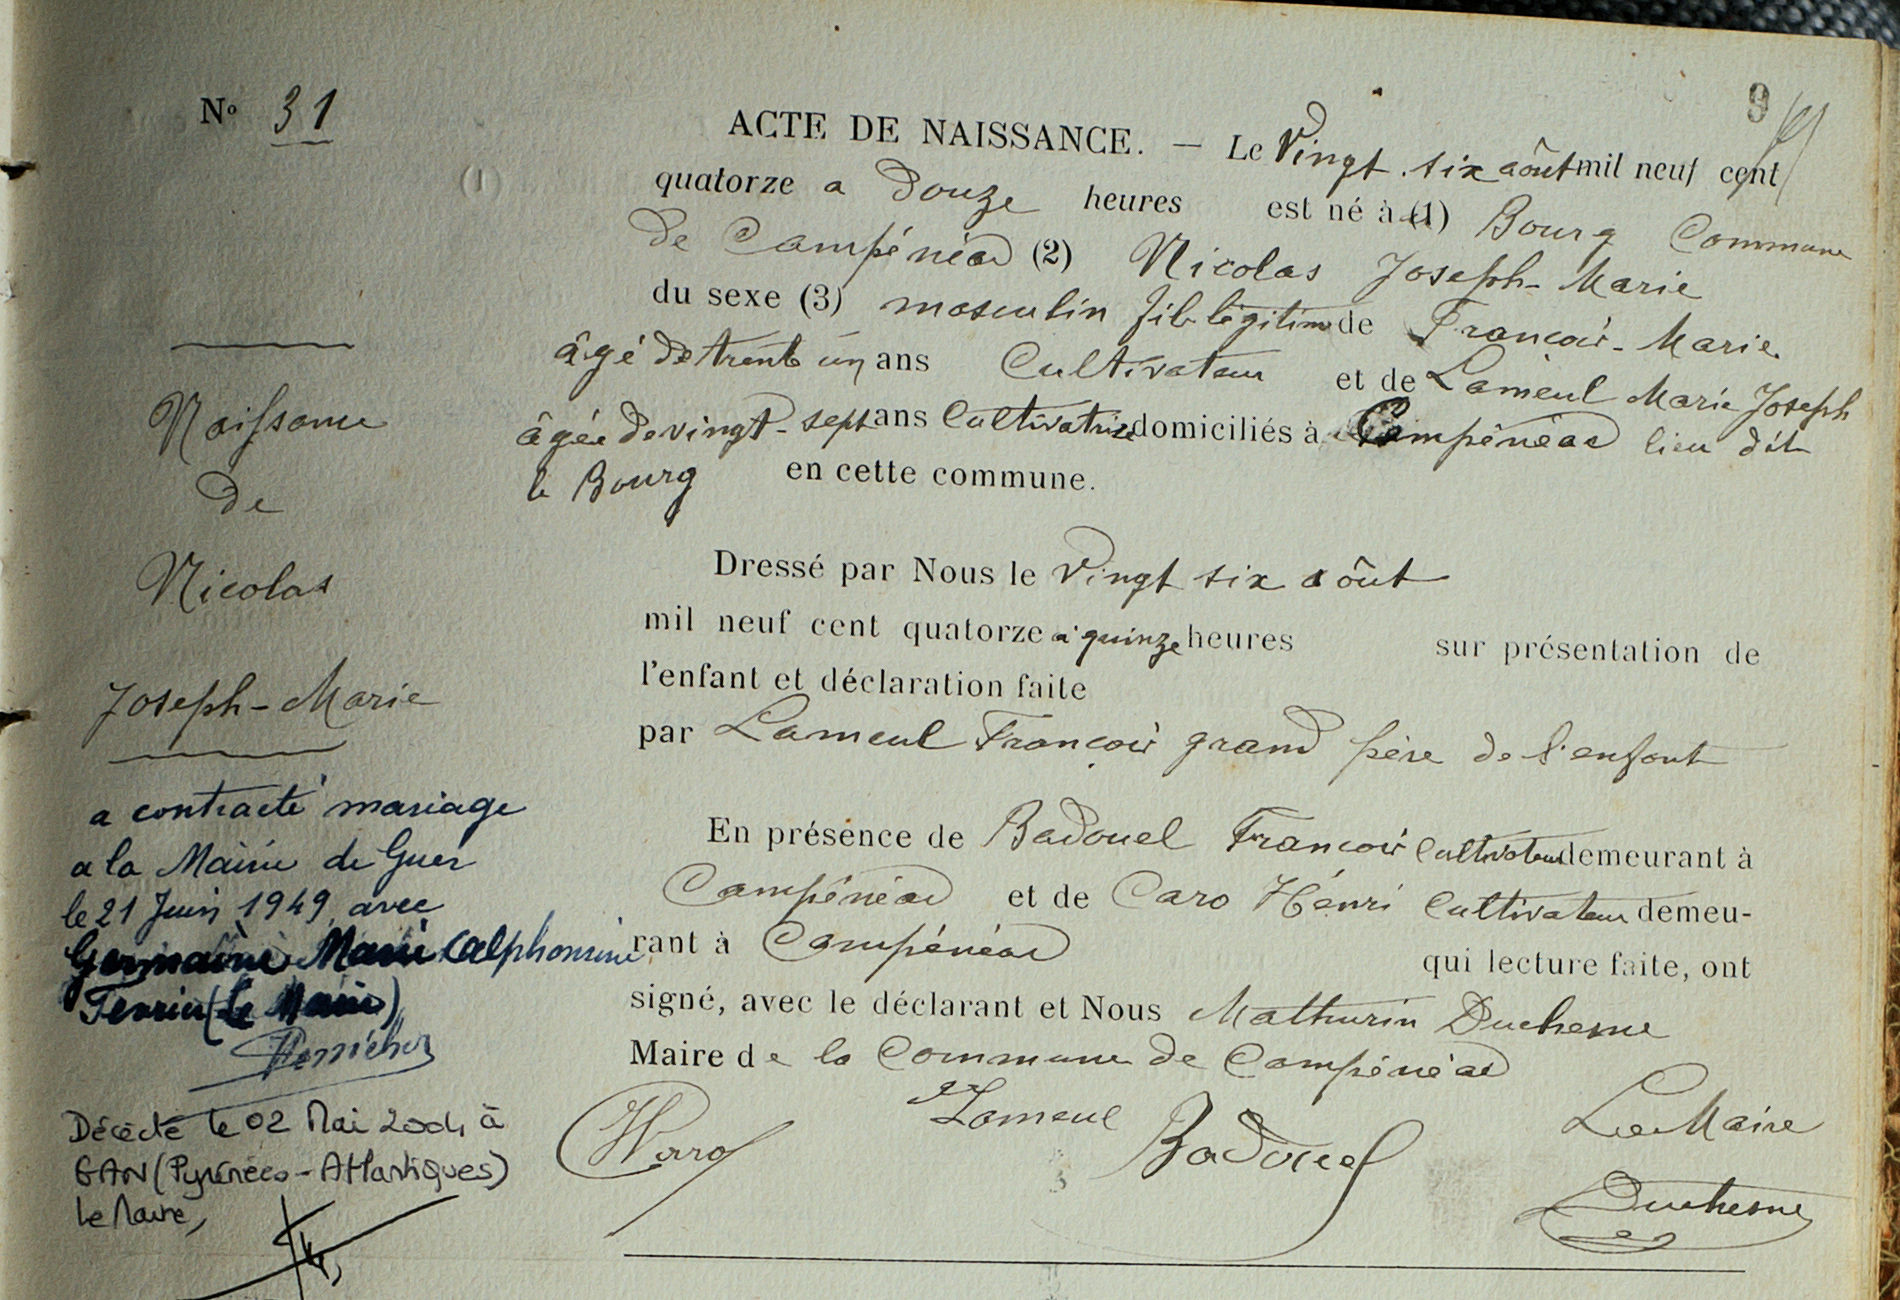 9
N° 31
ACTE DE NAISSANCE. — Le Vingt six août mil neuf cent
quatorze a douze heures est né à (1) Bourg Commune
de Campénéac (2) Nicolas Joseph-Marie
du sexe (3) masculin fils légitime de François-Marie
âgé de trente un ans Cultivateur et de Lameul Marie Joseph
âgée de vingt-sept ans Cultivatrice domiciliés à Campénéac lieu dit
le Bourg en cette commune.
Dressé par Nous le Vingt six août
mil neuf cent quatorze a quinze heures sur présentation de
l'enfant et déclaration faite
par Lameul François grand père de l'enfant
En présence de Badouel François Cultivateur demeurant à
Campénéac et de Caro Hénri Cultivateur demeu-
rant à Campénéac qui lecture faite, ont
signé, avec le déclarant et Nous Mathurin Duchesne
Maire de la Commune de Campénéac
Lameul
Badouel
Le Maire
Duchesne
Naissance
de
Nicolas
Joseph-Marie
a contracté mariage
a la Mairie de Guer
le 21 Juin 1949 avec
Germaine Marie Alphonsine
(Le Maire)
Décédé le 02 Mai 2004 à
GAN (Pyrénées-Atlantiques)
Le Maire,